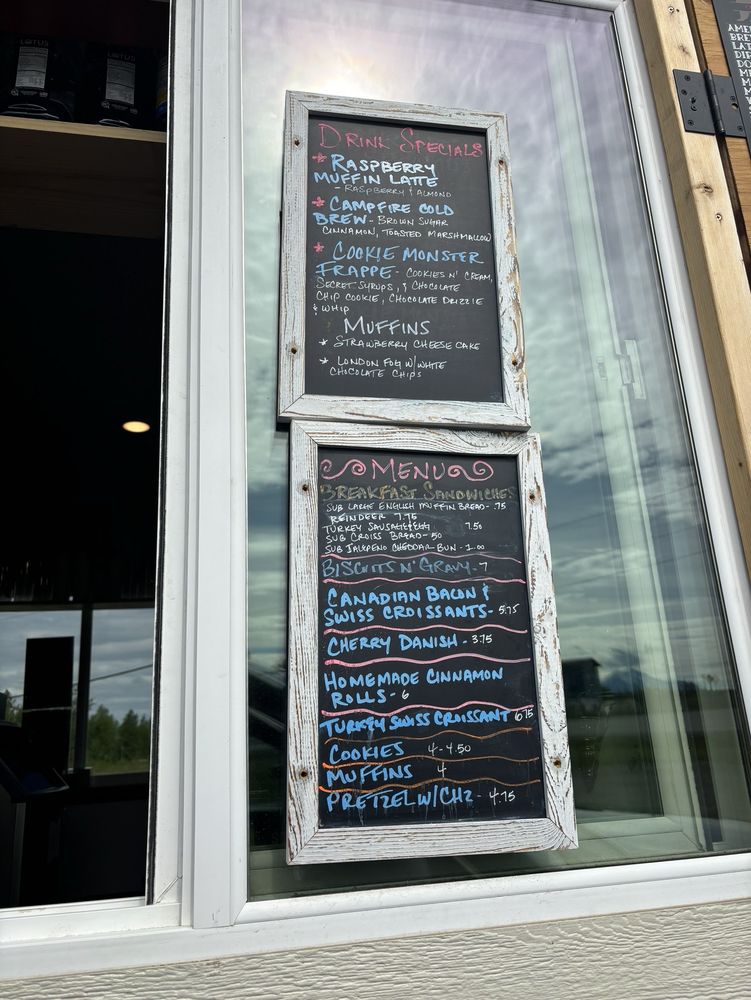 LOTUS
LOTUS
AME
BRE
LAT
DIR
DO
M
DRINK SPECIALS
* RASPBERRY
MUFFIN LATTE
- RASPBERRY & ALMOND
* CAMPFIRE COLD
BREW - BROWN SUGAR
CINNAMON, TOASTED MARSHMALLOW
* COOKIE MONSTER
FRAPPE - COOKIES N' CREAM,
SECRET SYRUPS, & CHOCOLATE
CHIP COOKIE, CHOCOLATE DRIZZLE
& WHIP
MUFFINS
* STRAWBERRY CHEESECAKE
* LONDON FOG W/ WHITE
CHOCOLATE CHIPS
MENU
BREAKFAST SANDWICHES
SUB LARGE ENGLISH MUFFIN BREAD - .75
REINDEER 7.75
TURKEY SAUSAGE & EGG 7.50
SUB CROISS BREAD - 50
SUB JALEPENO CHEDDAR BUN - 1.00
BISCUITS N' GRAVY - 7
CANADIAN BACON &
SWISS CROISSANTS - 5.75
CHERRY DANISH - 3.75
HOMEMADE CINNAMON
ROLLS - 6
TURKEY SWISS CROISSANT 6.75
COOKIES 4 - 4.50
MUFFINS 4
PRETZEL W/ CHZ - 4.75